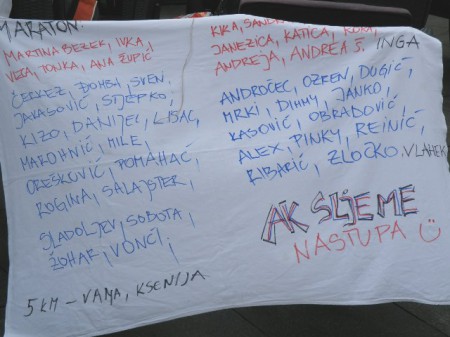 MARATON:
MARTINA BEZEK, IVKA,
VETA, TONKA, ANA ŽUPIĆ
ČERKEZ, BOMBA, SVEN,
JAKASOVIĆ, STJEPKO,
KIZO, DANIJEL, LISAC,
MAROHNIĆ, MILE,
OREŠKOVIĆ, POMAHAČ,
ROGINA, SALAJSTER,
SLADOLJEV, SOBOTA,
ŽOHAR, VONČI,
5 KM – VANA, KSENIJA
KIKA,
JANEZICA, KATICA,
ANDREJA, ANDREA Š. INGA
ANDROČEC, OZREN, DUGIĆ,
MRKI, DIMMY, JANKO,
KASOVIĆ, OBRADOVIĆ,
ALEX, PINKY, REINIĆ,
RIBARIĆ, ZLOČKO, VLAHEK
AK SLJEME
NASTUPA